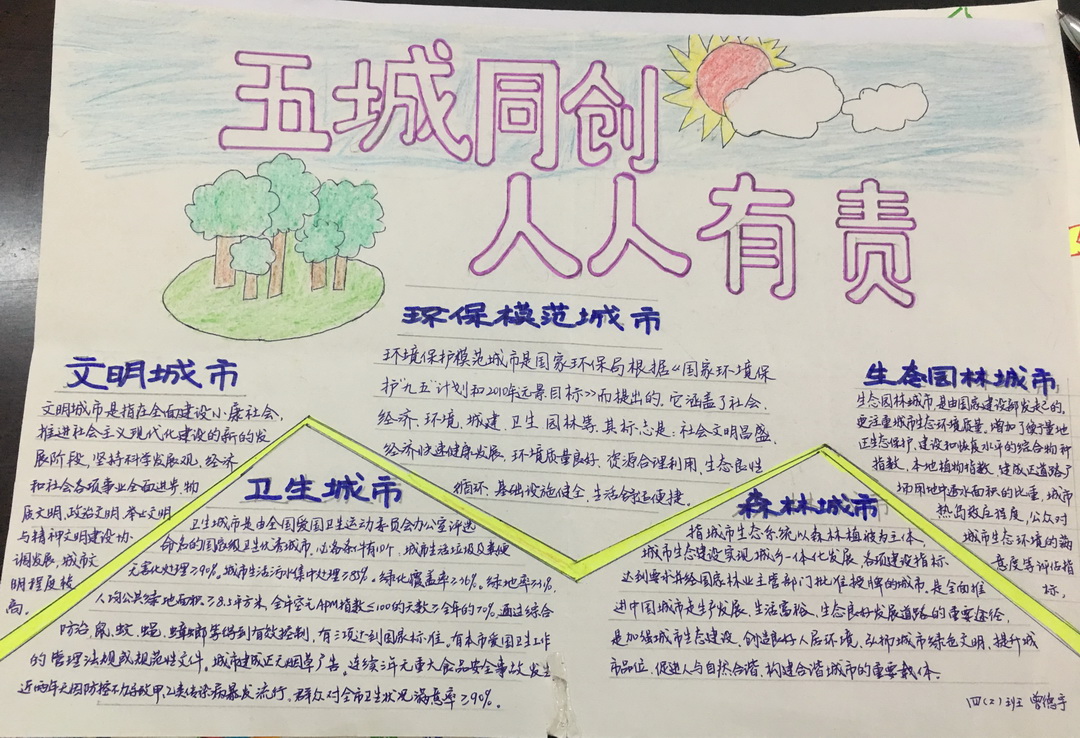 五城同创
人人有责
环保模范城市
环境保护模范城市是国家环保局根据《国家环境保
护"九五"计划和2010年远景目标》而提出的。它涵盖了社会、
经济、环境、城建、卫生、园林等,其标志是:社会文明昌盛,
经济快速健康发展、环境质量良好、资源合理利用,生态良性
循环、基础设施健全、生活舒适便捷。
文明城市
文明城市是指在全面建设小康社会,
推进社会主义现代化建设的新的发
展阶段,坚持科学发展观,经济
和社会各项事业全面进步,物
质文明,政治文明,
与精神文明建设协
调发展,城市文
明程度较
高。
卫生城市
卫生城市是由全国爱国卫生运动委员会办公室评选
命名的国家级卫生优秀城市,必备条件有10个,城市生活垃圾及粪便
无害化处理≥90%。城市生活污水集中处理≥85%。绿化覆盖率≥36%,绿地率≥31%,
人均公共绿地面积≥8.5平方米,全年空气API指数≤100的天数≥全年的70%,通过综合
防治,鼠、蚊、蝇、蟑螂等得到有效控制,有三项达到国家标准。有本市爱国卫生工作
的管理法规或规范性文件。城市建成区无烟草广告。连续三年无重大食品安全事故发生
近两年无因防控不力导致甲、乙类传染病暴发流行。群众对全市卫生状况满意率≥90%。
生态园林城市
生态园林城市,是由国家建设部发起的,
更注重城市生态环境质量,增加了衡量地
区生态保护、建设和恢复水平的综合物种
指数、本地植物指数、建成区道路广
场用地中透水面积的比重、城市
热岛效应程度,公众对
城市生态环境的满
意度等评估指
标,
森林城市
指城市生态系统以森林植被为主体,
城市生态建设实现城乡一体化发展,各项建设指标
达到要求并经国家林业主管部门批准授牌的城市,是全面推
进中国城市走生产发展、生活富裕、生态良好发展道路的重要途径,
是加强城市生态建设、创造良好人居环境,弘扬城市绿色文明,提升城
市品位,促进人与自然和谐,构建和谐城市的重要载体。
四(2)班 曾德宇